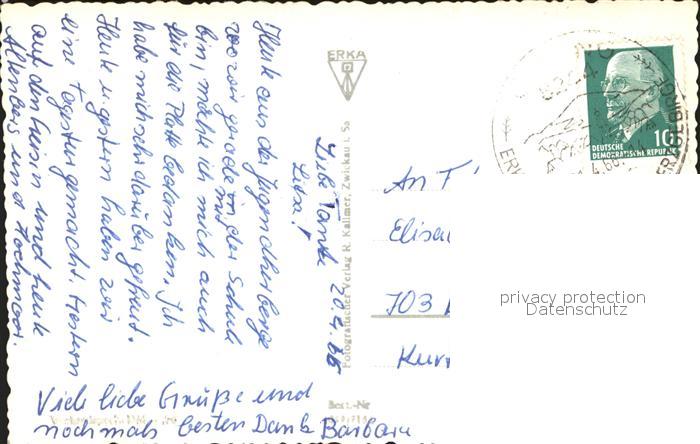 ERKA
Liebe Tante
Lisa! 20.4.66
Heute aus der Jugendherberge
wo wir gerade mit der Schule
bin, möchte ich mich auch
für die Platte bedanken. Ich
habe mich sehr darüber gefreut.
Heute u. gestern haben wir
eine Tagestour gemacht. Gestern
auf den und heute
Altenberg und Hochmoor.
Viele liebe Grüße und
nochmals besten Dank Barbara
Fotografischer Verlag R. Kallmer, Zwickau i. Sa
Best.-Nr
An T
Elisa
703
Kurt
10
DEUTSCHE
DEMOKRATISCHE REPUBLIK
privacy protection
Datenschutz